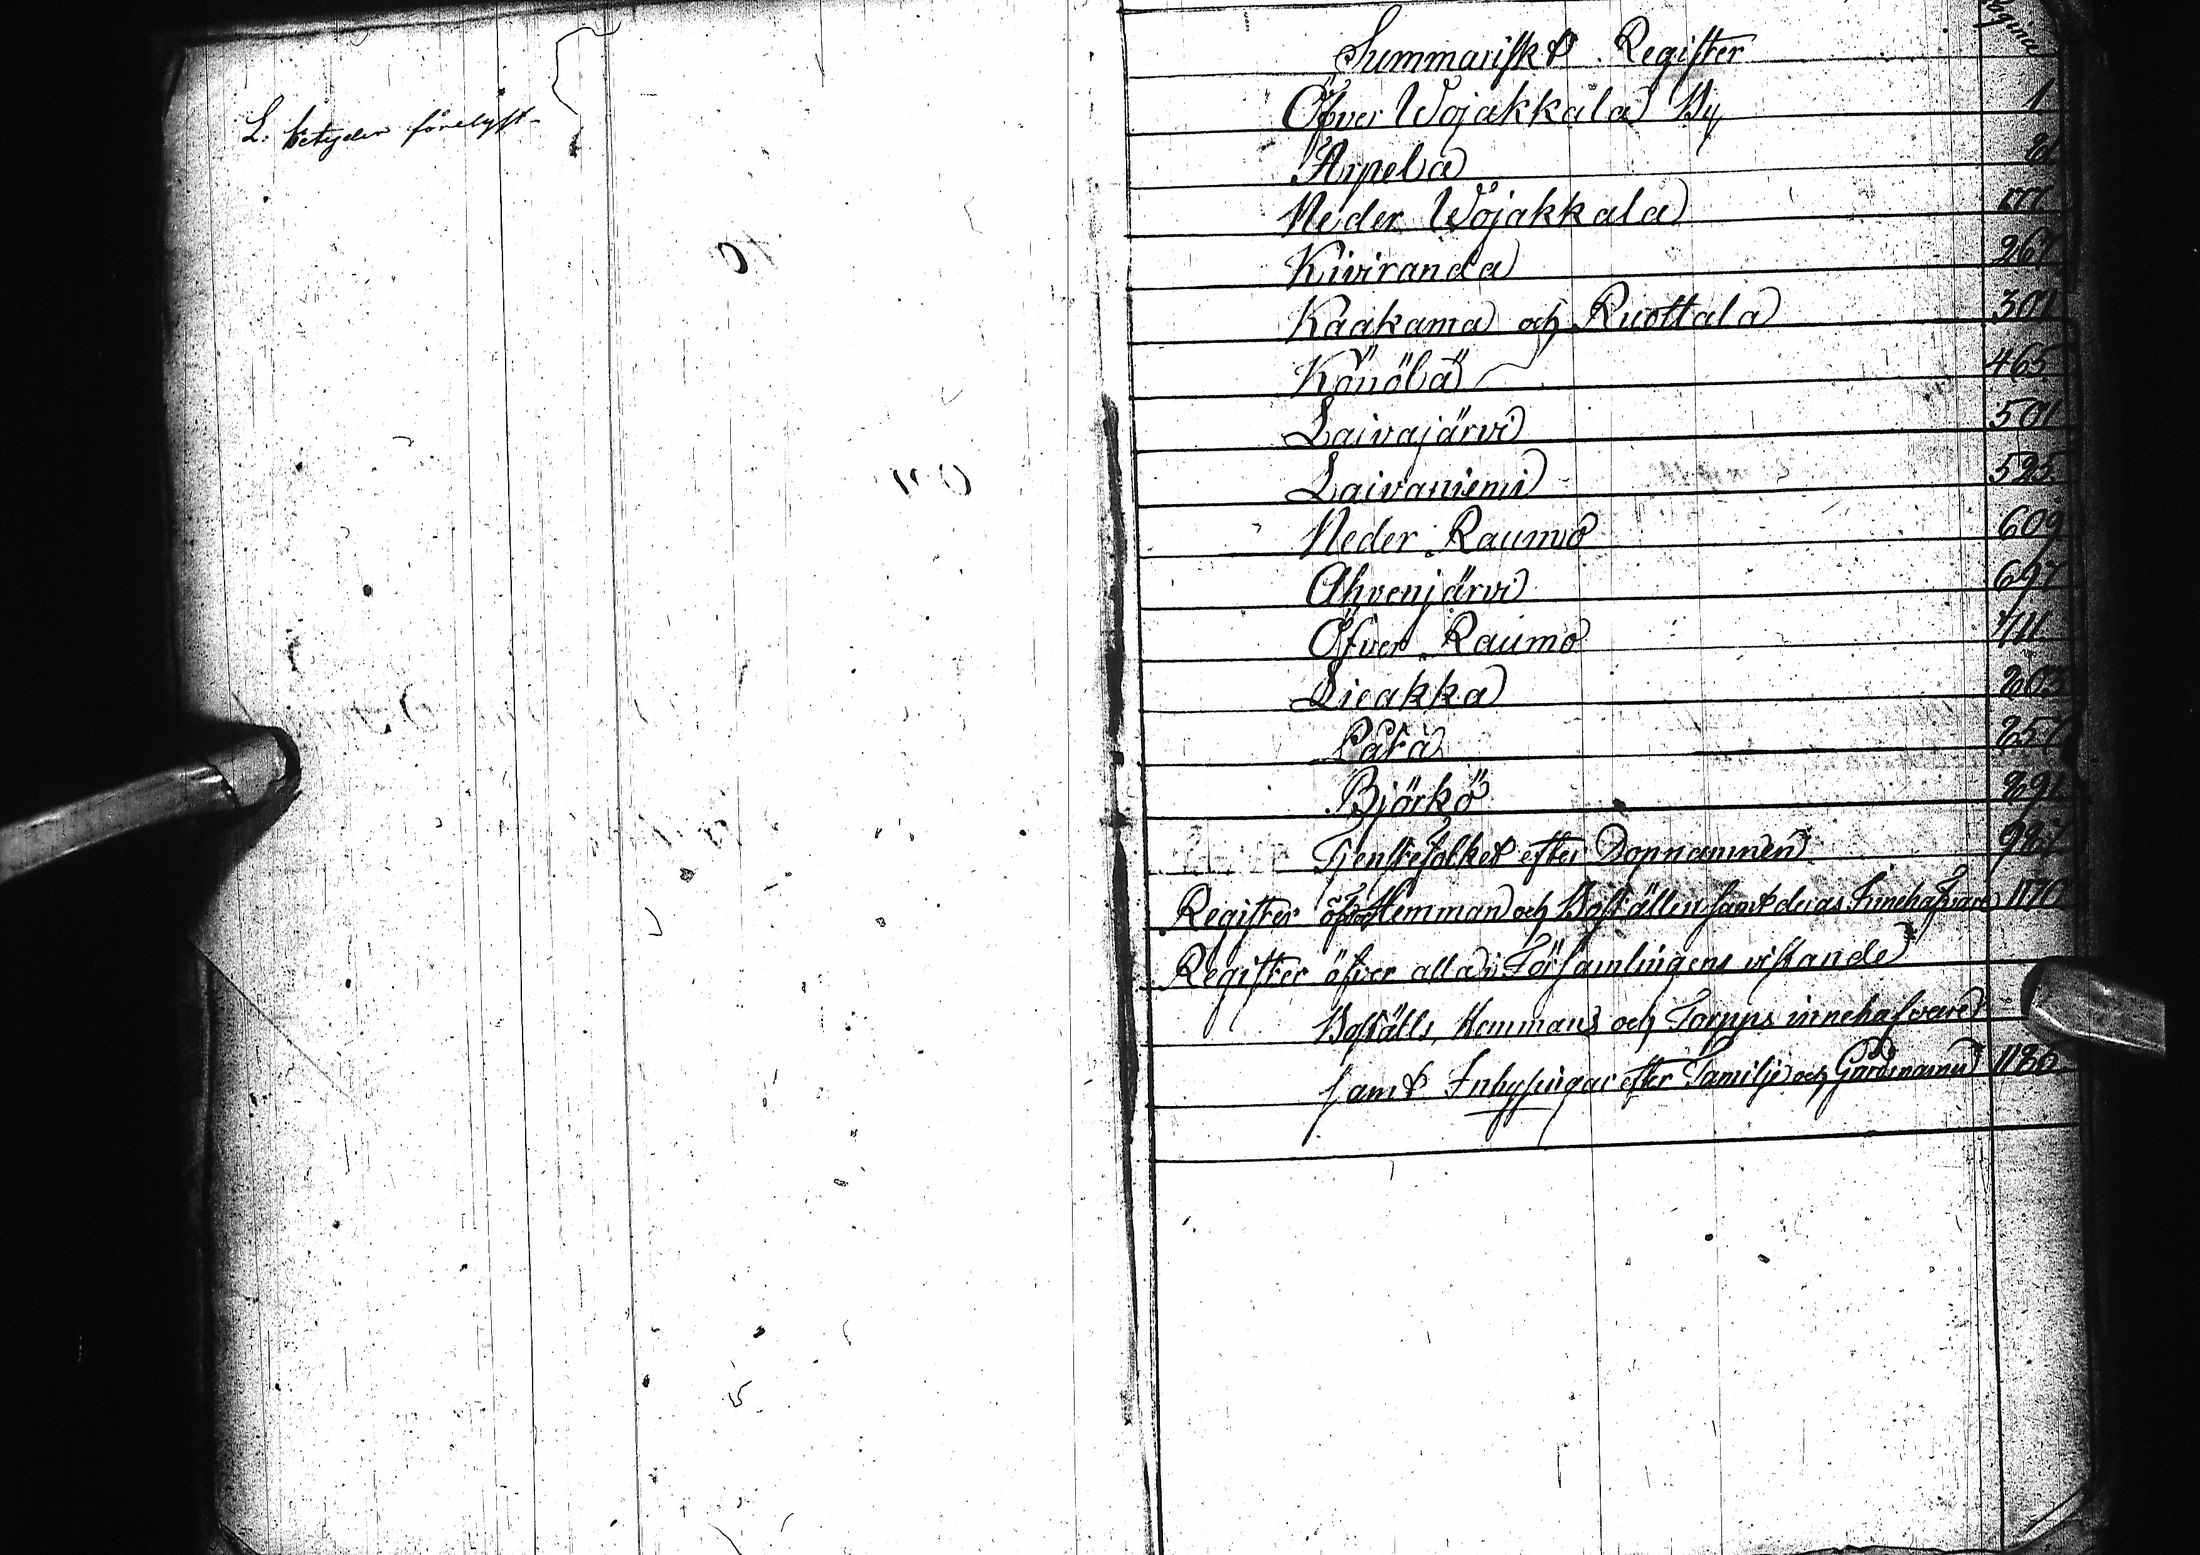 L: betyder förelyst
Pagina
Summariskt Register
Öfver Wojakkala By 1
Arpela 81
Neder Wojakkala 177
Kiviranda 267
Kaakama och Ruottala 301
Könölä 465
Laivajärvi 501
Laivaniemi 525
Neder Raumo 609
Ahvenjärvi 697
Öfver Raumo 711
Lieakka 803
Lätä 857
Björkö 891
Tjenstefolket efter Dopnamnen 987
Register öfver Hemman och Boställen samt deras Innehafvare 1176
Register öfver alla i Församlingens vistande
Boställs, Hemmans och Torpps innehafvare
samt Inhysingar efter Familje och Gårdsnamn 1186